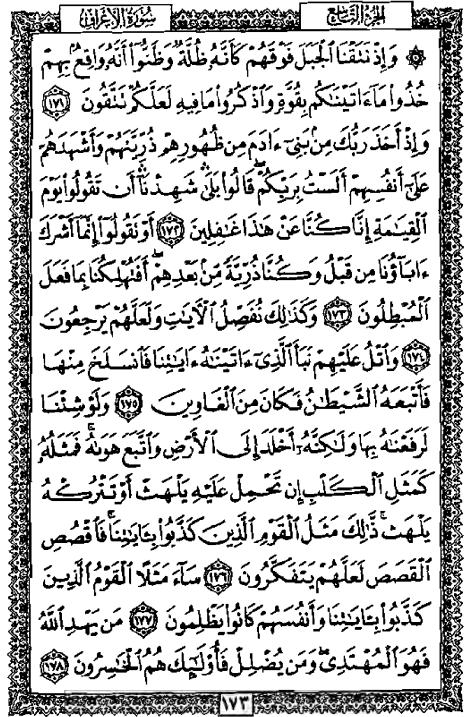 سُورَةُ الأَعْرَافِ
الجُزْءُ التَّاسِعُ
۞ وَإِذْ نَتَقْنَا الْجَبَلَ فَوْقَهُمْ كَأَنَّهُ ظُلَّةٌ وَظَنُّوا أَنَّهُ وَاقِعٌ بِهِمْ
خُذُوا مَا ءَاتَيْنَٰكُم بِقُوَّةٍ وَاذْكُرُوا مَا فِيهِ لَعَلَّكُمْ تَتَّقُونَ ١٧١
وَإِذْ أَخَذَ رَبُّكَ مِنْ بَنِي ءَادَمَ مِن ظُهُورِهِمْ ذُرِّيَّتَهُمْ وَأَشْهَدَهُمْ
عَلَىٰ أَنفُسِهِمْ أَلَسْتُ بِرَبِّكُمْ قَالُوا بَلَىٰ شَهِدْنَا أَن تَقُولُوا يَوْمَ
الْقِيَٰمَةِ إِنَّا كُنَّا عَنْ هَٰذَا غَٰفِلِينَ ١٧٢ أَوْ تَقُولُوا إِنَّمَا أَشْرَكَ
ءَابَاؤُنَا مِن قَبْلُ وَكُنَّا ذُرِّيَّةً مِّنْ بَعْدِهِمْ أَفَتُهْلِكُنَا بِمَا فَعَلَ
الْمُبْطِلُونَ ١٧٣ وَكَذَٰلِكَ نُفَصِّلُ الْآيَٰتِ وَلَعَلَّهُمْ يَرْجِعُونَ
١٧٤ وَاتْلُ عَلَيْهِمْ نَبَأَ الَّذِي ءَاتَيْنَٰهُ ءَايَٰتِنَا فَانسَلَخَ مِنْهَا
فَأَتْبَعَهُ الشَّيْطَٰنُ فَكَانَ مِنَ الْغَاوِينَ ١٧٥ وَلَوْ شِئْنَا
لَرَفَعْنَٰهُ بِهَا وَلَٰكِنَّهُ أَخْلَدَ إِلَى الْأَرْضِ وَاتَّبَعَ هَوَىٰهُ فَمَثَلُهُ
كَمَثَلِ الْكَلْبِ إِن تَحْمِلْ عَلَيْهِ يَلْهَثْ أَوْ تَتْرُكْهُ
يَلْهَث ذَّٰلِكَ مَثَلُ الْقَوْمِ الَّذِينَ كَذَّبُوا بِـَٔايَٰتِنَا فَاقْصُصِ
الْقَصَصَ لَعَلَّهُمْ يَتَفَكَّرُونَ ١٧٦ سَاءَ مَثَلًا الْقَوْمُ الَّذِينَ
كَذَّبُوا بِـَٔايَٰتِنَا وَأَنفُسَهُمْ كَانُوا يَظْلِمُونَ ١٧٧ مَن يَهْدِ اللَّهُ
فَهُوَ الْمُهْتَدِي وَمَن يُضْلِلْ فَأُولَٰئِكَ هُمُ الْخَٰسِرُونَ ١٧٨
١٧٣